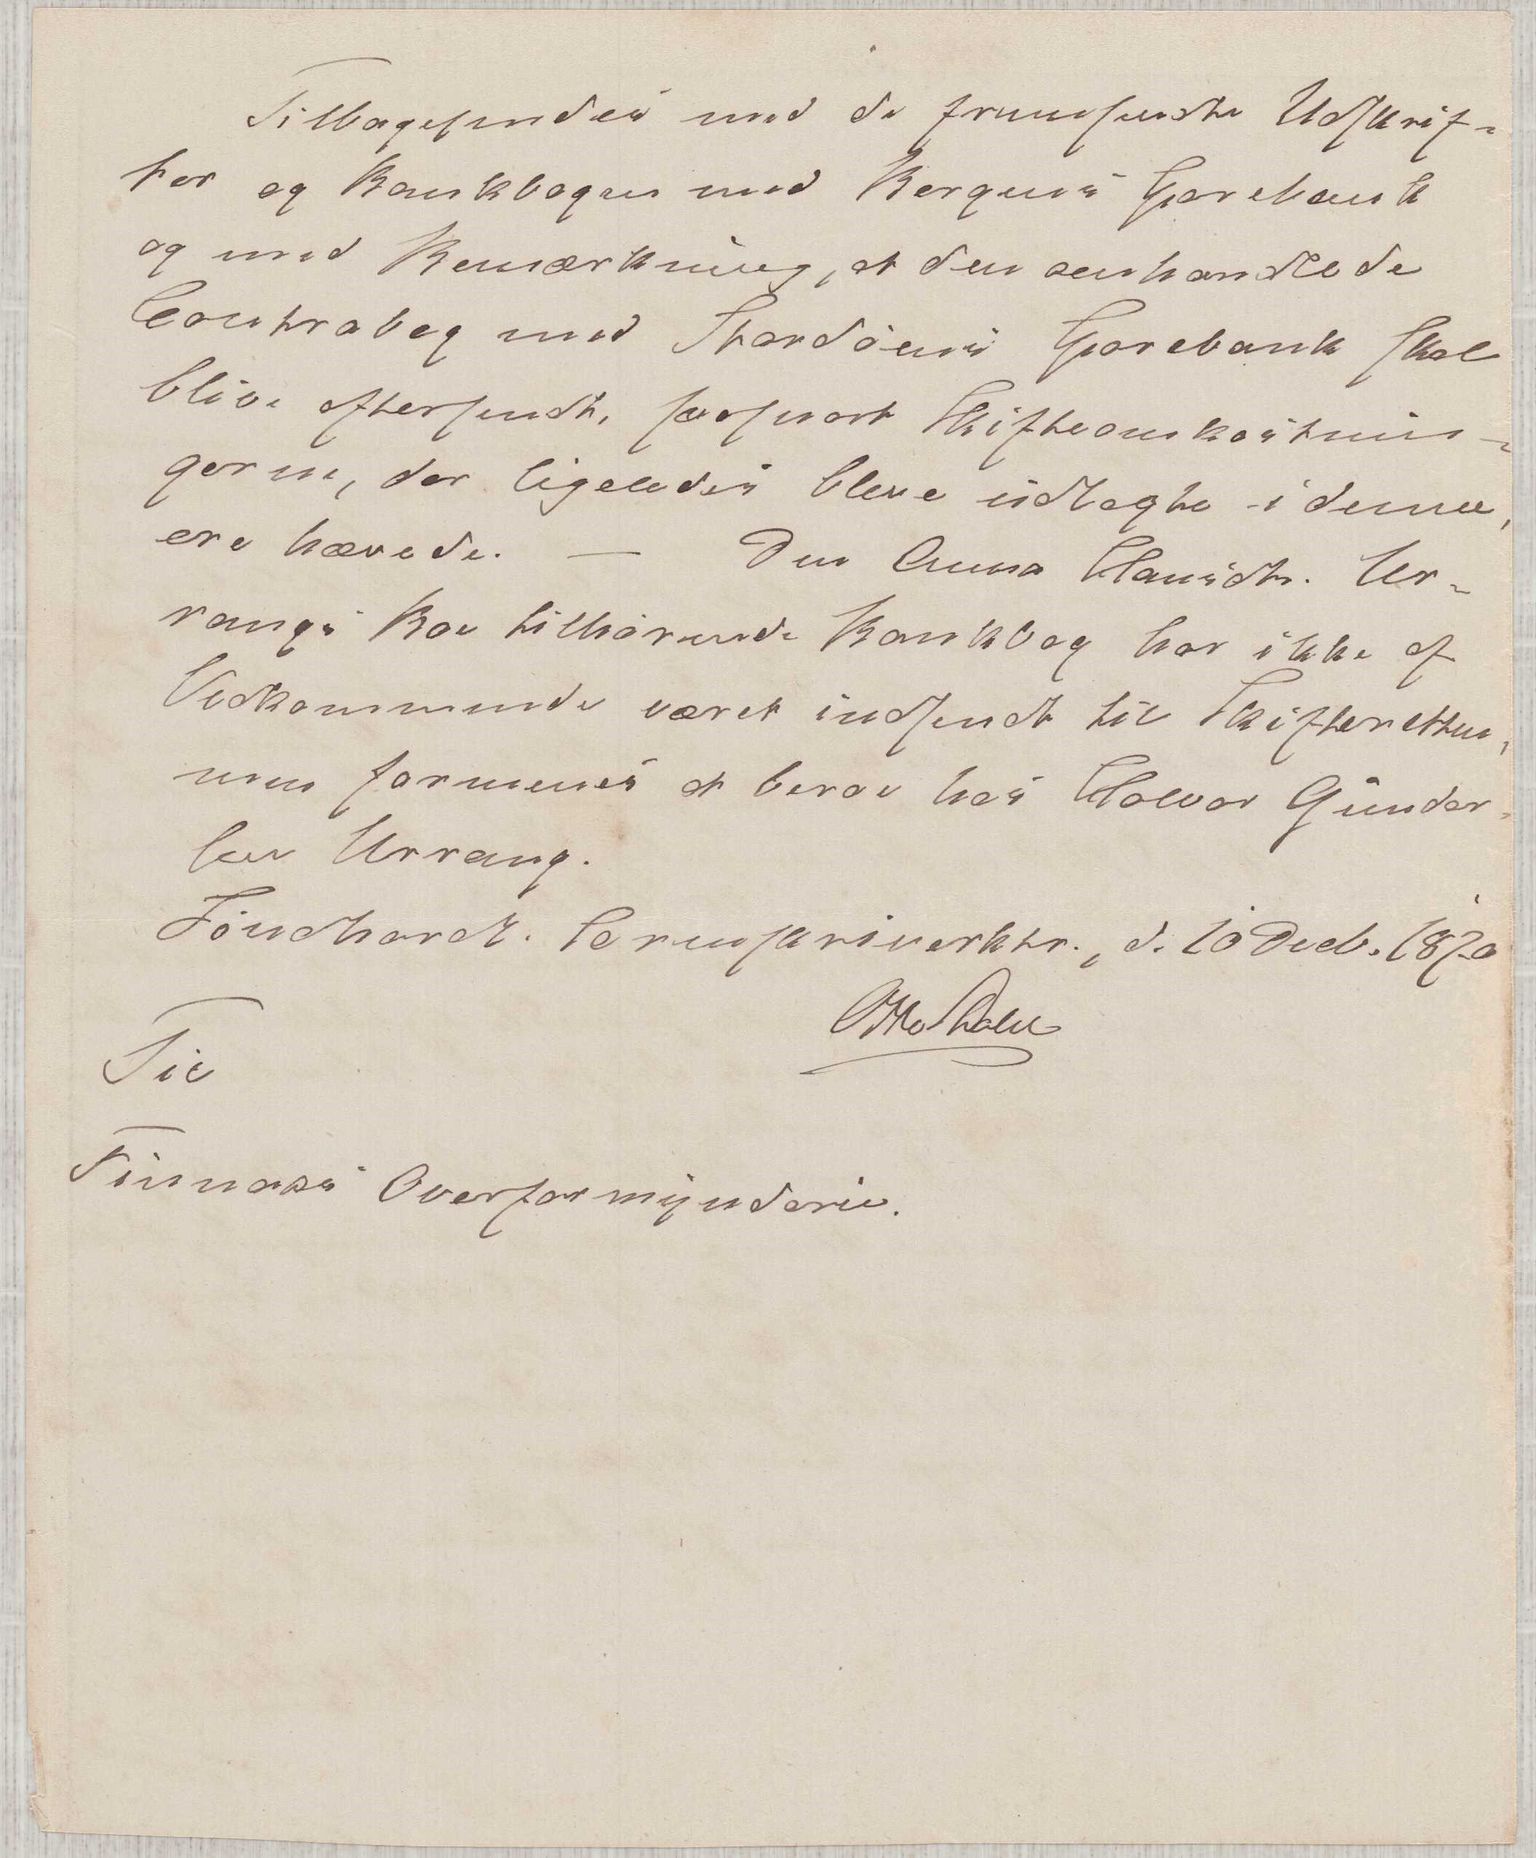 Tilbagesendes med de fremsendte Udskrif-
ter og Bankbogen med Bergens Sparebank
og med Bemærkning, at den omhandlede
Contrabog med Stordøens Sparebank skal
blive eftersendt, saasnart Skifteomkostnin-
gerne, der ligeledes bleve udlagte i denne,
ere hævede. — Den Anna Hansdtr. Ur-
rangs Bo tilhørende Bankbog har ikke af
Vedkommende været indsendt til Skifteretten,
men formenes at bero hos Halvor Gunder-
sen Urrang.
Søndhordl. Sorenskriverktr., d. 10 Decb. 1870
Otto
Til
Finnaas Overformynderie.